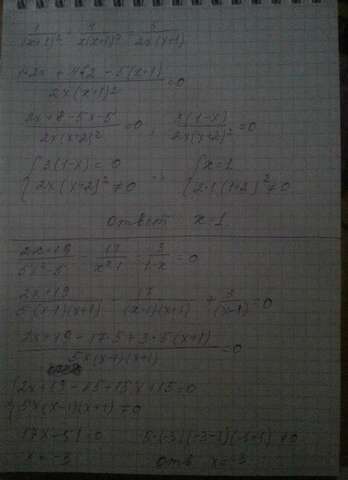 1/(x+1)² + 4/(x(x+1)²) = 5/(2x(x+1))
(1·2x + 4·2 - 5(x+1))/(2x(x+1)²) = 0
(2x+8-5x-5)/(2x(x+2)²) = 0 ; 3(1-x)/(2x(x+2)²) = 0
{3(1-x) = 0 {x=1
{2x(x+2)² ≠ 0 {2·1(1+2)² ≠ 0
Ответ x=1.
(2x+19)/(5x²-5) - 17/(x²-1) = 3/(1-x) = 0
(2x+19)/(5(x-1)(x+1)) - 17/((x-1)(x+1)) + 3/(x-1) = 0
(2x+19-17·5+3·5(x+1))/(5x(x-1)(x+1)) = 0
{2x+19-85+15x+15=0
{5x(x-1)(x+1) ≠ 0
17x-51=0
отв x=-3